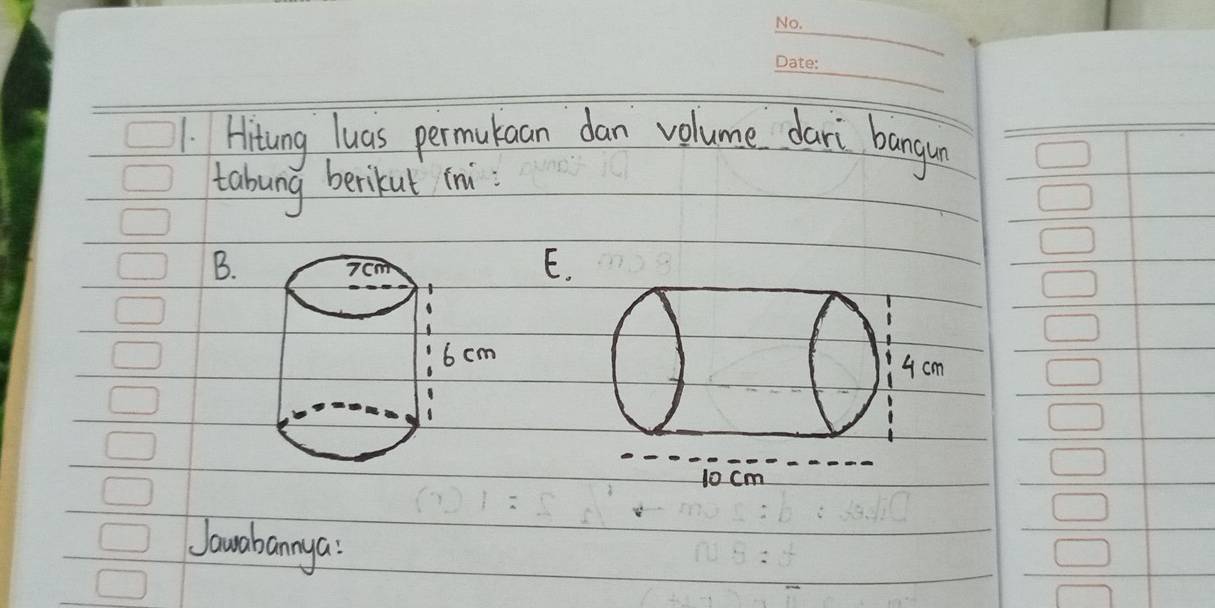 No.
Date:
1. Hitung luas permukaan dan volume dari bangun
tabung berikut ini :
B.
7cm
6 cm
E.
4 cm
10 cm
Jawabannya: